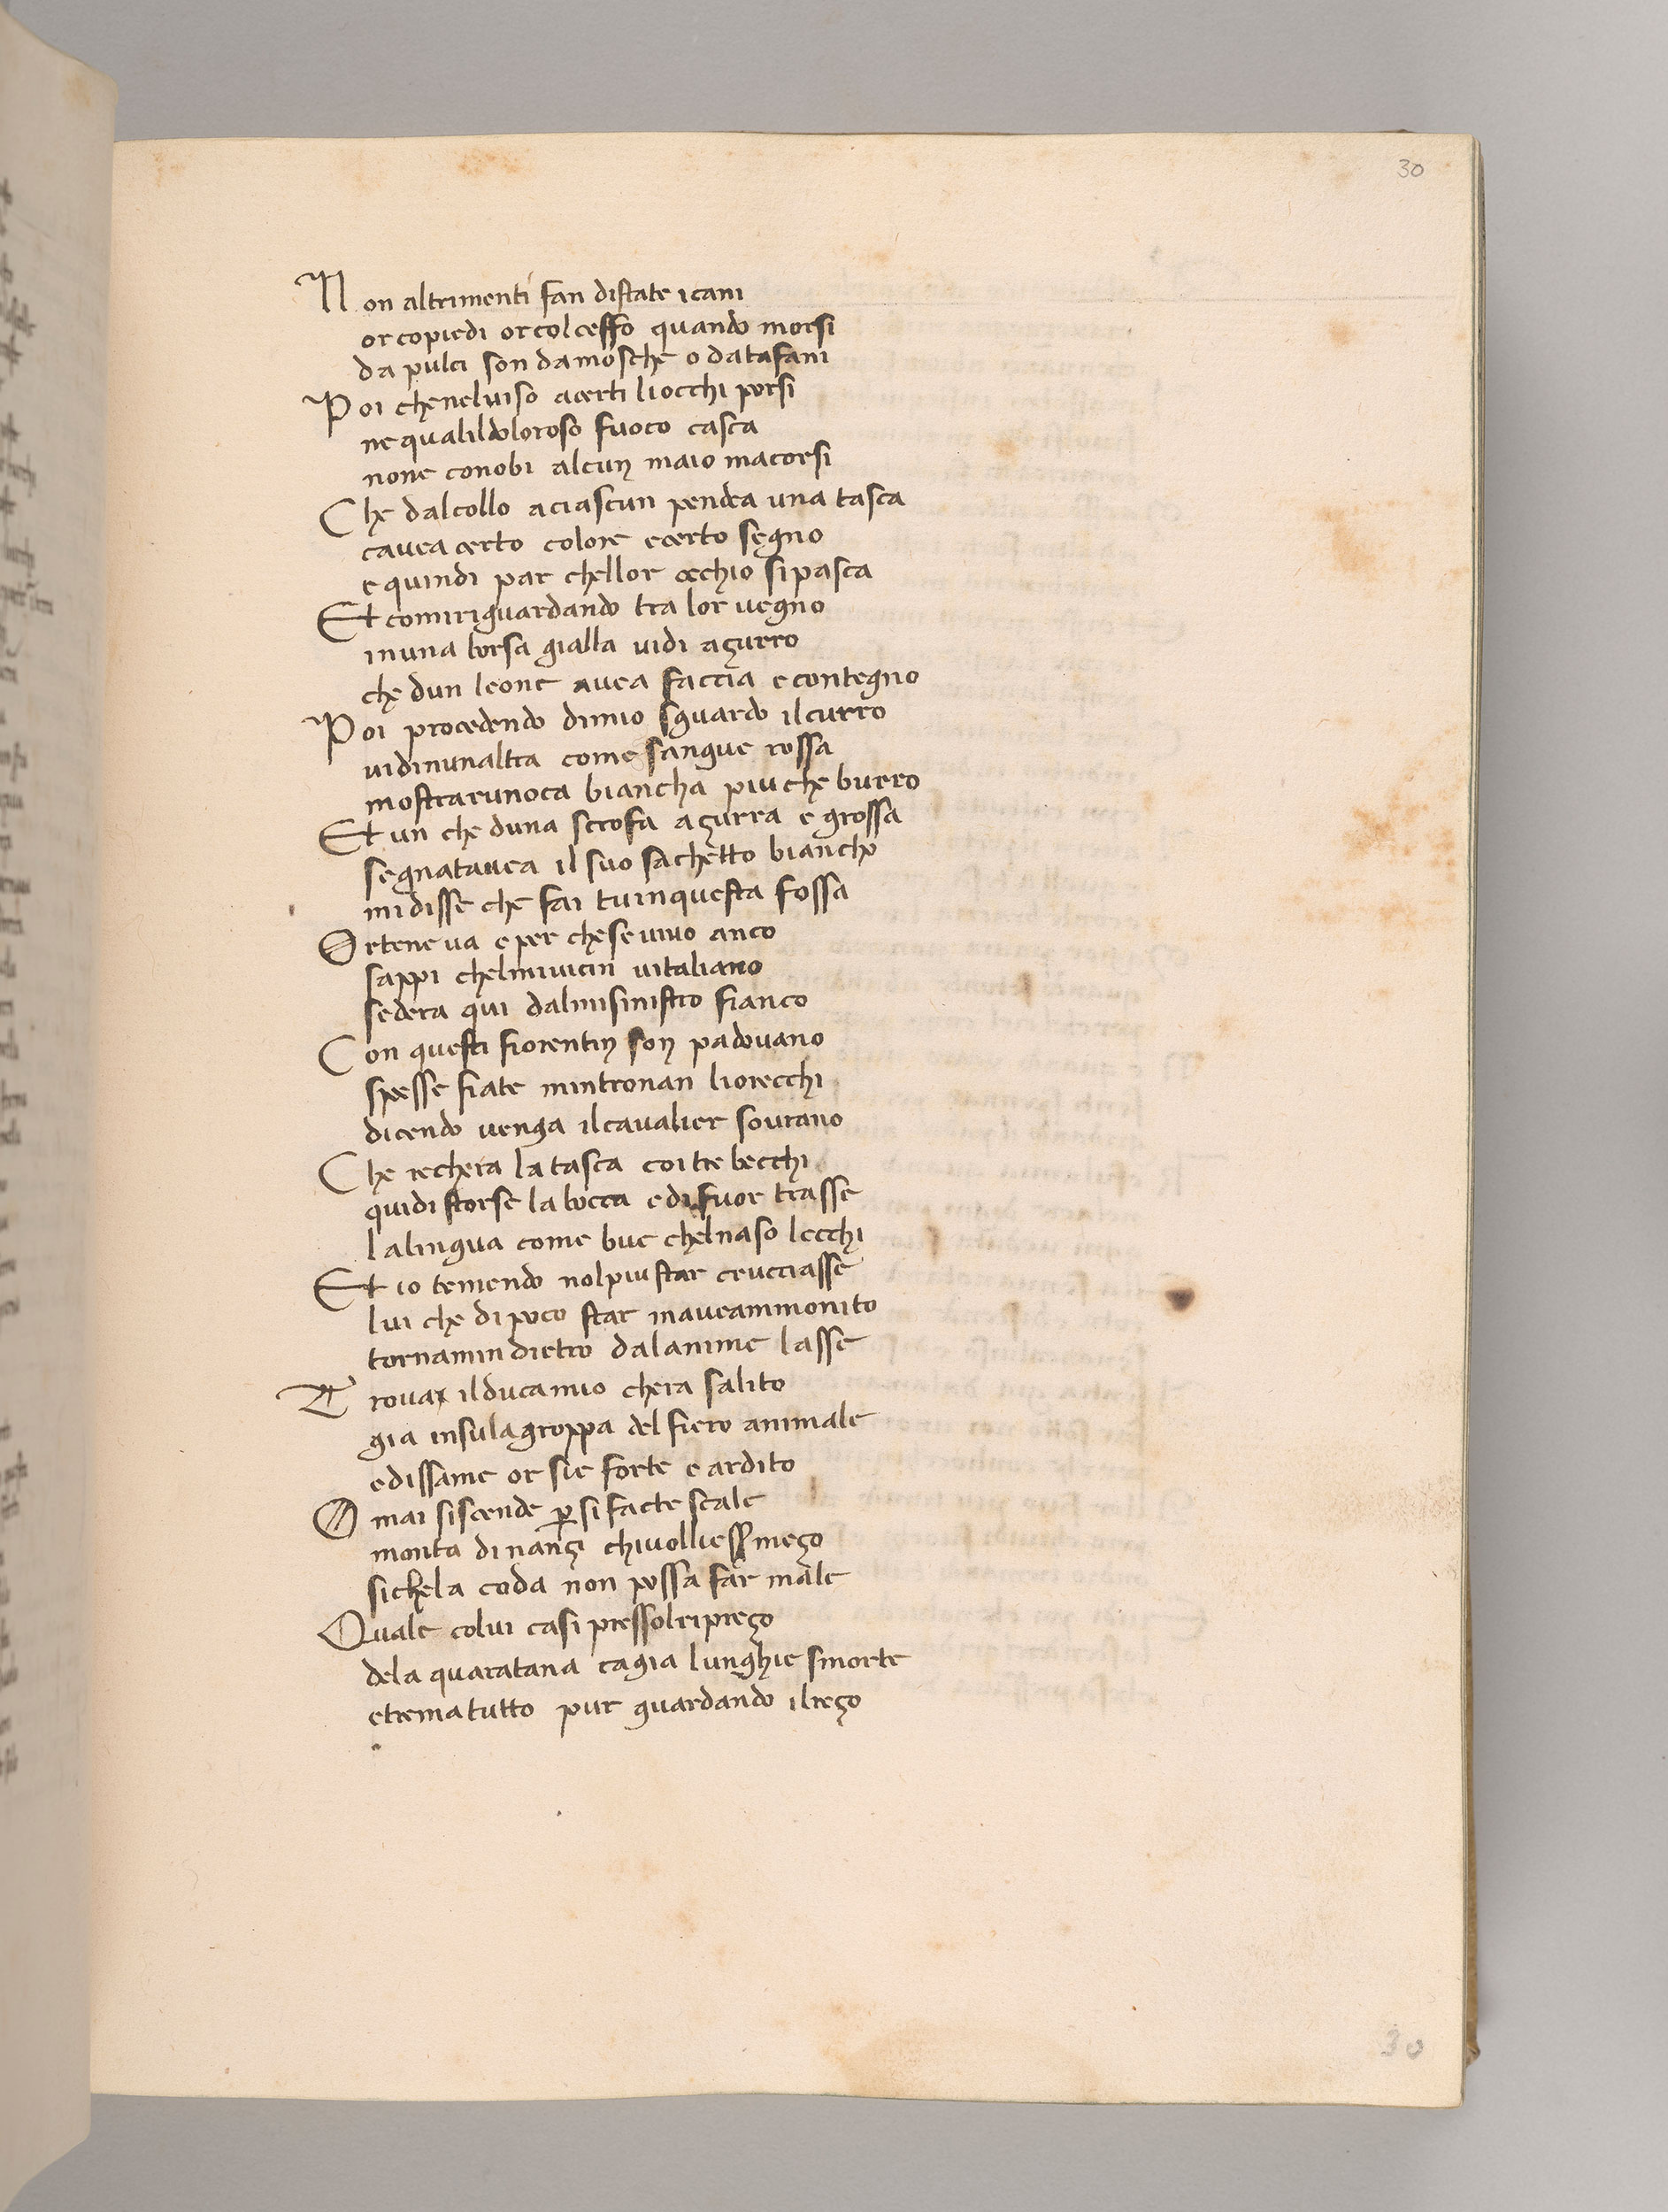 30
Non altrimenti fan distate icani
or copiedi orcolceffo quando morsi
da pulci son damosche o datafani
Poi chenelviso acerti liocchi porsi
nequalildoloroso fuoco casca
none conobi alcun maio macorsi
Che dalcollo aciascun pendea una tasca
cavea certo colore ecerto segno
e quindi par chellor ochio sipasca
Et comiriguardando tra lor vegno
inuna borsa gialla vidi açurro
che dun leone avea faccia e contegno
Poi procedendo dimio sguardo ilcurro
vidinunaltra come sangue rossa
mostrarunoca biancha piu che burro
Et un che duna scrofa açurra e grossa
segnatavea il suo sachetto biancho
midisse che fai tuinquesta fossa
Ortene va e per chese vivo anco
sappi chelmivicin vitaliano
sedera qui dalmisinistro fianco
Con questi fiorentin son padovano
spesse fiate mintronan liorecchi
dicendo venga ilcavalier sovrano
Che rechera la tasca coi tre becchi
quidi storse la bocca e di fuor trasse
lalingua come bue chelnaso lecchi
Et io temendo nolpiustar crucciasse
lui che di poco star maveammonito
tornamin dietro dalanime lasse
Trovai ilducamio chera salito
gia insulagroppa del fiero animale
edissame or sie forte e ardito
Omai siscende p si facte scale
monta dinançi chivolliess meço
sichela coda non possa far male
Quale colui casi pressolripreço
dela quaratana cagia lunghie smorte
etrematutto pur guardando ilreço
30